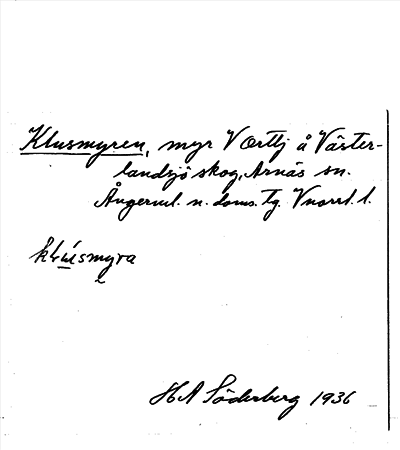 Klusmyren, myr V Orttj å Väster-
landsjö skog, Arnäs sn.
Ångerml. n. doms. tg. Vnorrl. l.
klusmyra
H A Söderberg 1936